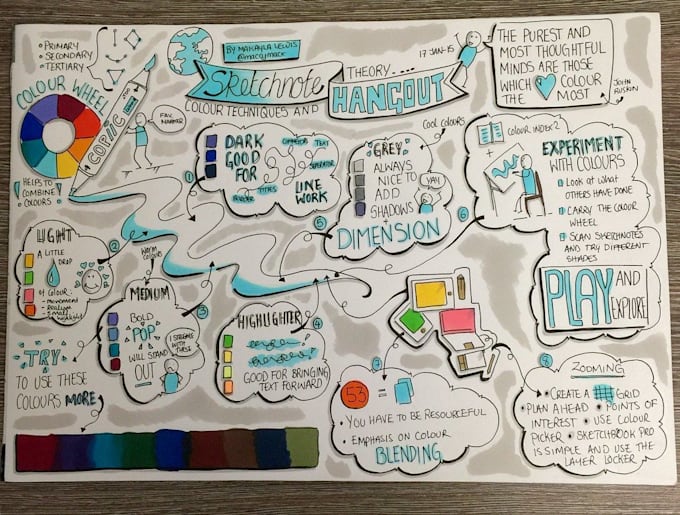 BY MAKAYLA LEWIS
@maccymacx
Sketchnote
THEORY ....
HANGOUT
COLOUR TECHNIQUES AND
17 JAN-15
THE PUREST AND
MOST THOUGHTFUL
MINDS ARE THOSE
WHICH COLOUR
THE MOST
JOHN
RUSKIN
PRIMARY
SECONDARY
TERTIARY
COLOUR WHEEL
COPIC
FAV
MARKER
HELPS TO
COMBINE
COLOURS
1
DARK
GOOD
FOR
CONNECTOR
TEXT
SEPERATOR
BORDER
TITLES
LINE
WORK
2
LIGHT
A LITTLE
A DROP
of Colour:
- movement
- Realism
- small
highlight
Warm
colours
3
MEDIUM
BOLD
POP
WILL STAND
OUT
I STRUGGLE
WITH THESE
4
HIGHLIGHTER
GOOD FOR BRINGING
TEXT FORWARD
5
Cool colours
GREY
ALWAYS
NICE TO
ADD
SHADOWS
YAY
DIMENSION
6
COLOUR INDEX 2
EXPERIMENT
WITH COLOURS
Look at what
OTHERS HAVE DONE
CARRY THE COLOUR
WHEEL
SCAN SKETCHNOTES
AND TRY DIFFERENT
SHADES
PLAY AND
EXPLORE
TRY
TO USE THESE
COLOURS MORE
7
53 =
YOU HAVE TO BE RESOURCEFUL
EMPHASIS ON COLOUR
BLENDING
8
ZOOMING
CREATE A GRID
PLAN AHEAD • POINTS OF
INTEREST • USE COLOUR
PICKER • SKETCHBOOK PRO
IS SIMPLE AND USE THE
LAYER LOCKER